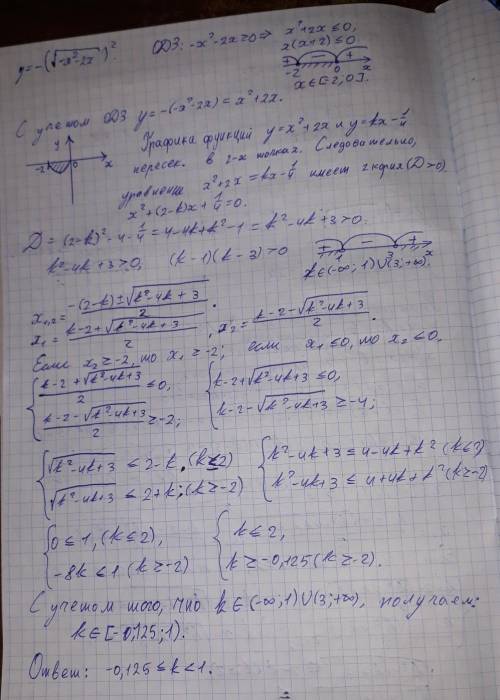 y=-(√-x²-2x)². ОДЗ: -x²-2x≥0 ⇒ x²+2x≤0,
x(x+2)≤0.
+ - +
-2 0 x
x∈[-2;0].
С учетом ОДЗ y=-(-x²-2x)=x²+2x.
y
-2 0 x
Графики функций y=x²+2x и y=kx-1/4
пересек. в 2-х точках. Следовательно,
уравнение x²+2x=kx-1/4 имеет 2 корня (D>0)
x²+(2-k)x+1/4=0.
D=(2-k)²-4·1/4=4-4k+k²-1=k²-4k+3>0.
k²-4k+3>0, (k-1)(k-3)>0
+ - +
1 3 x
k∈(-∞;1)∪(3;+∞).
x₁,₂=(-(2-k)±√k²-4k+3)/2.
x₁=(k-2+√k²-4k+3)/2, x₂=(k-2-√k²-4k+3)/2.
Если x₂≥-2, то x₁≥-2; если x₁≤0, то x₂≤0.
{(k-2+√k²-4k+3)/2≤0, {k-2+√k²-4k+3≤0,
(k-2-√k²-4k+3)/2≥-2; k-2-√k²-4k+3≥-4;
{√k²-4k+3≤2-k, (k≤2) {k²-4k+3≤4-4k+k² (k≤2)
√k²-4k+3≤2+k; (k≥-2) k²-4k+3≤4+4k+k² (k≥-2)
{0≤1, (k≤2), {k≤2,
-8k≤1 (k≥-2) k≥-0,125 (k≥-2).
С учетом того, что k∈(-∞;1)∪(3;+∞), получаем:
k∈[-0,125;1).
Ответ: -0,125≤k<1.